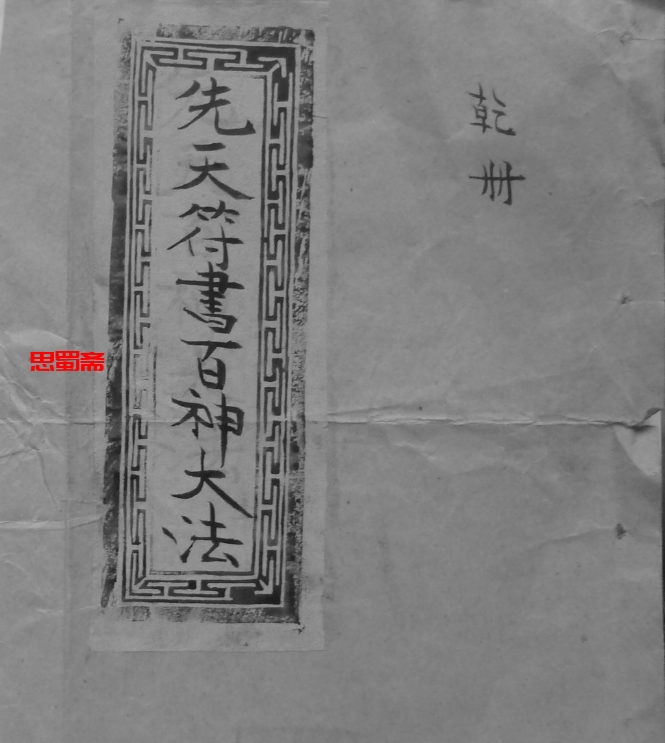 乾册
先天符書百神大法
思蜀斋